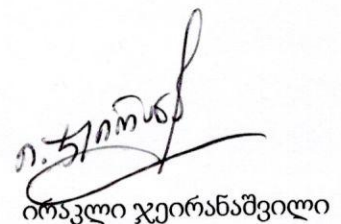 ირაკლი ჯეირანაშვილი